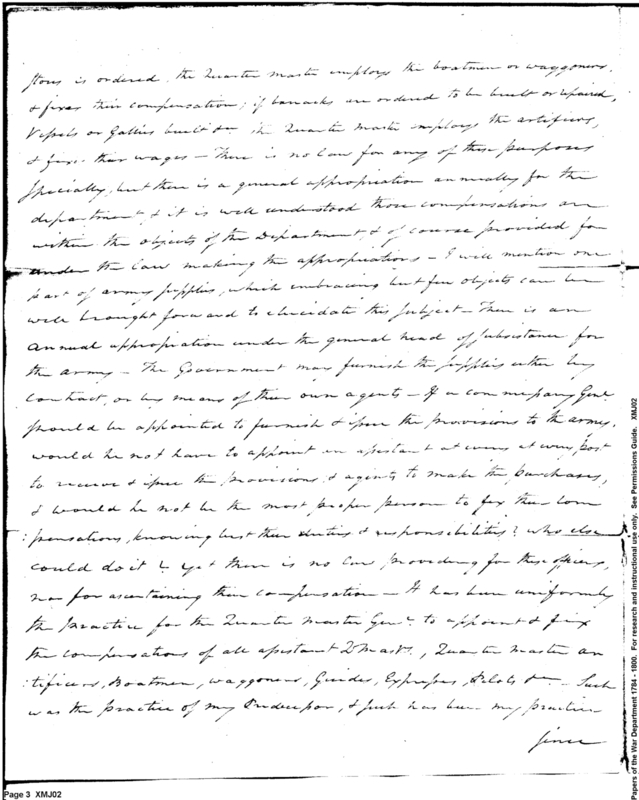 stores is ordered, the Quarter Master employs the boatmen or waggoners,
& fixes their compensation; if barracks are ordered to be built or repaired,
Vessels or Gallies built &c the Quarter Master employs the artificers,
& fixes their wages — There is no law for any of these purposes
specially, but there is a general appropriation annually for the
department, & it is well understood those compensations are
within the objects of the Department, & of course provided for
under the law making the appropriations — I will mention one
part of army supplies, which embracing but few objects can be
well brought forward to elucidate this subject — There is an
annual appropriation under the general head of subsistance for
the army — The Government may furnish the supplies either by
contract, or by means of their own agents — If a commissary Genl
should be appointed to furnish & issue the provisions to the army,
would he not have to appoint an assistant at every post
to receive & issue the provisions, & agents to make the purchases,
& would he not be the most proper person to fix their com
:pensations, knowing best their duties & responsibilities? who else
could do it? yet there is no law providing for these officers,
nor for ascertaining their compensation — It has been uniformly
the practice for the Quarter Master Genl. to appoint & fix
the compensations of all assistant Q Mast., Quarter Master ar
:tificers, Boatmen, waggoners, Guides, Expresses, Pilots &c — Such
was the practice of my Predecessor, & such has been my practice
since
Page 3 XMJ02
Papers of the War Department 1784 - 1800. For research and instructional use only. See Permissions Guide. XMJ02